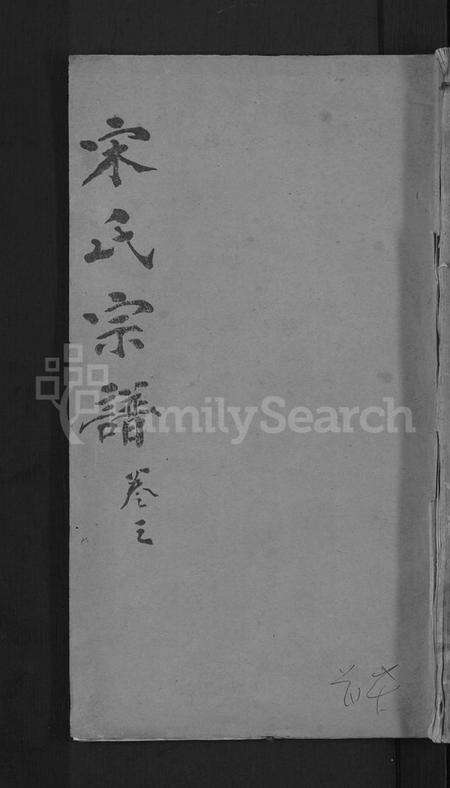 宋氏宗譜
卷三
FamilySearch